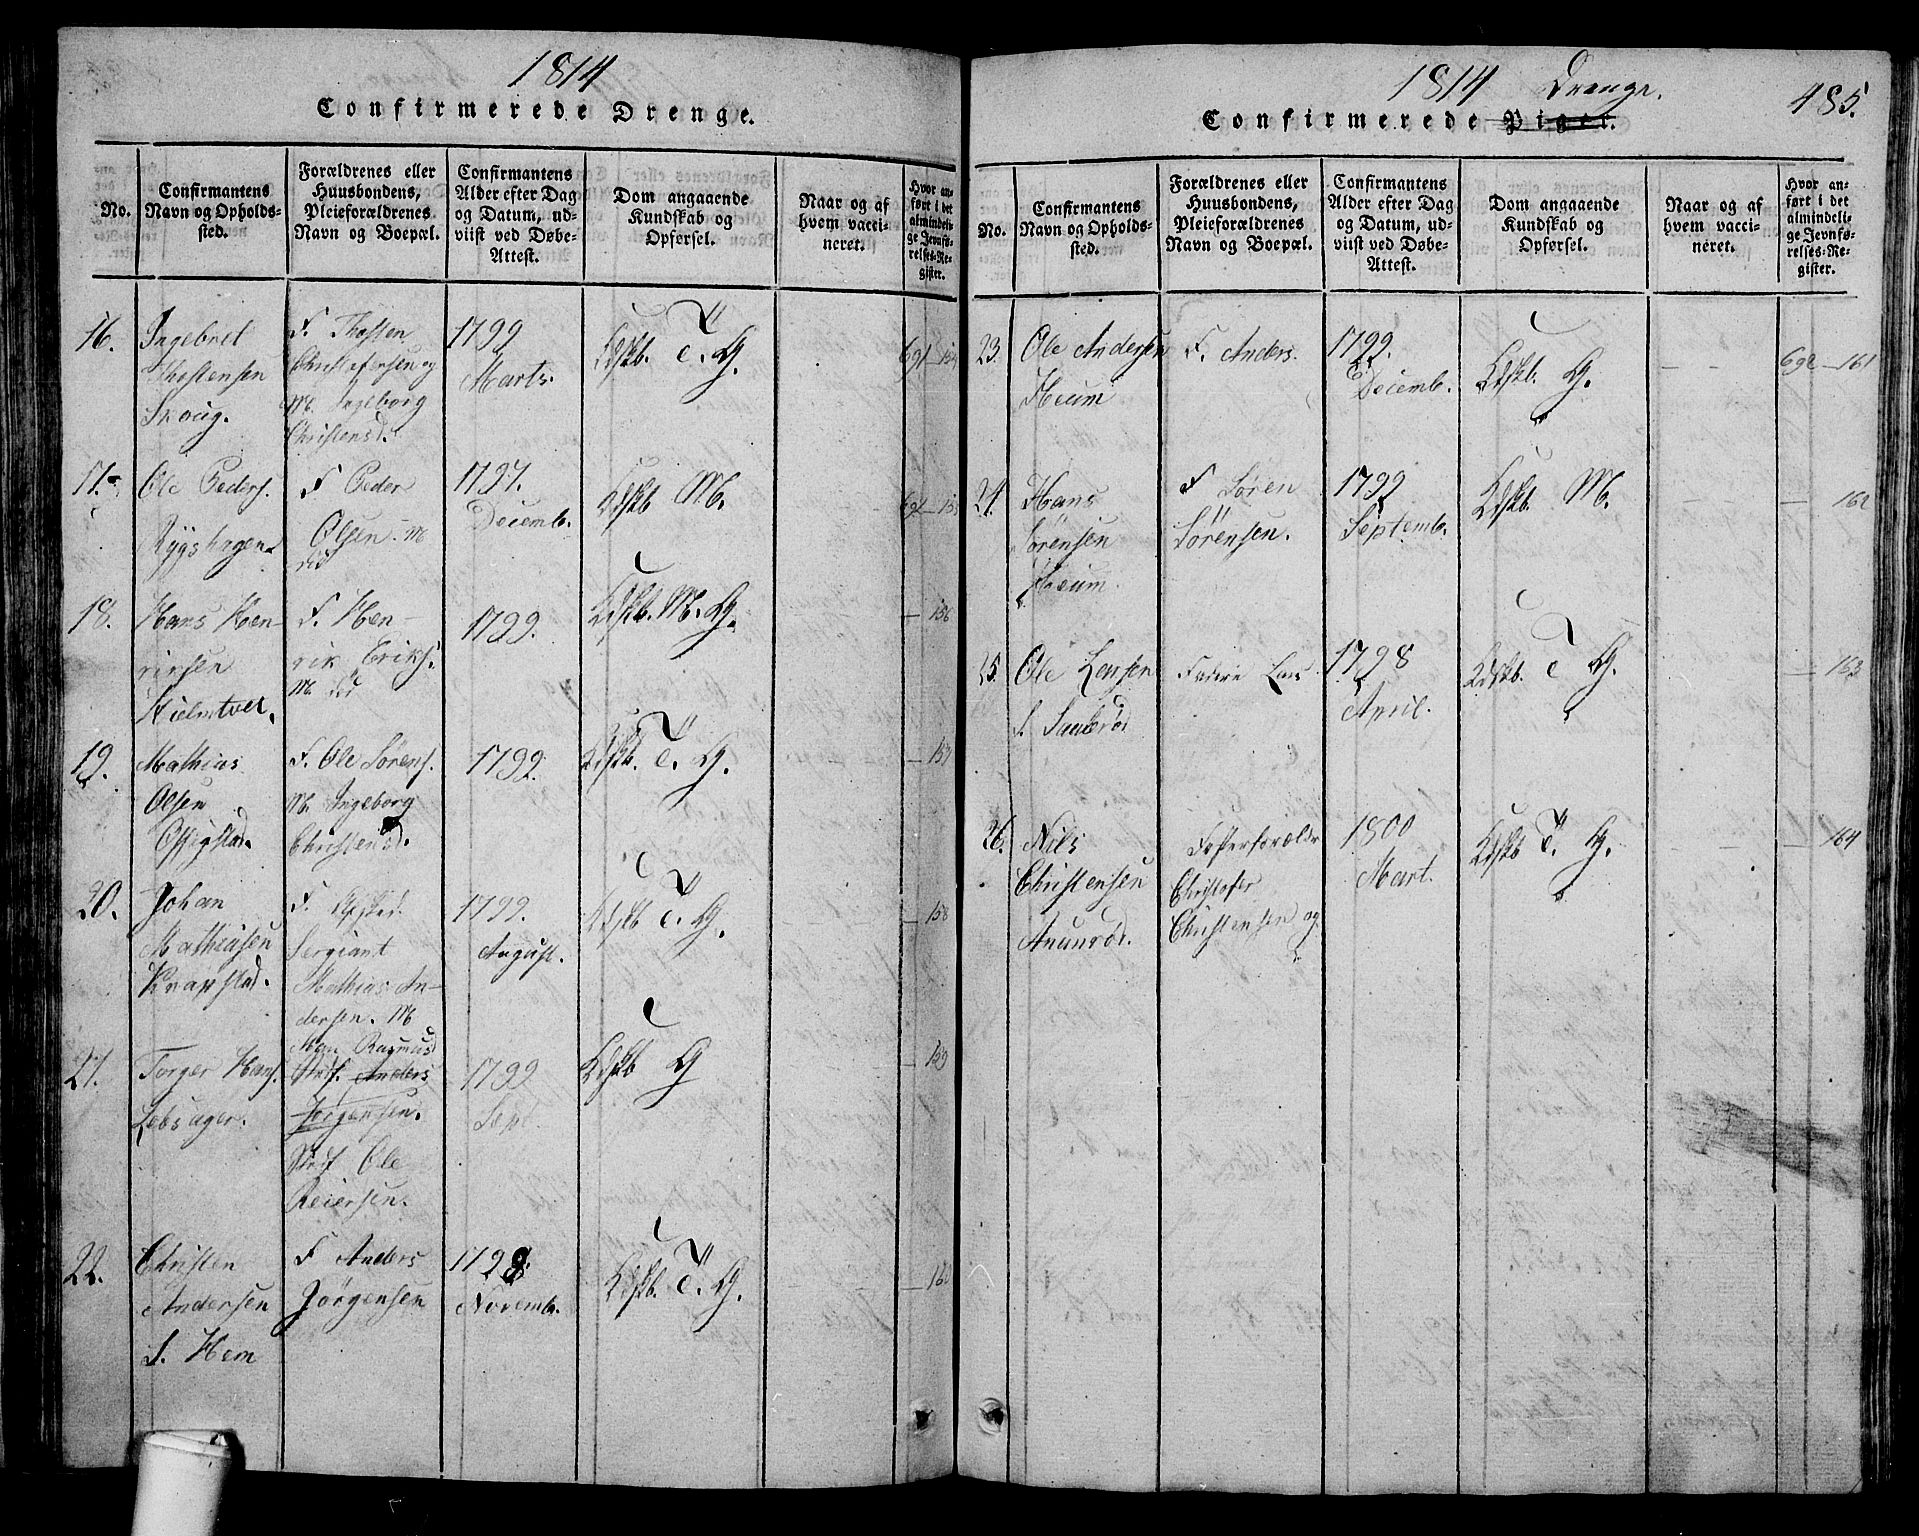 1814
Confirmerede Drenge.
No.
Confirmantens
Navn og Opholds-
sted.
Forældrenes eller
Huusbondens,
Pleieforældrenes
Navn og Boepæl.
Confirmantens
Alder efter Dag
og Datum, ud-
viist ved Døbe-
Attest.
Dom angaaende
Kundskab og
Opførsel.
Naar og af
hvem vacci-
neret.
Hvor an-
ført i det
almindeli-
ge Jevnfø-
relses-Re-
gister.
16.
Ingebret
Thostensen
Skoug.
F. Thosten
Christofersen og
M. Ingeborg
Christensd.
1799
Marts.
Kdskb. T. G.
691 - 154
17.
Ole Peders.
Rygshagen
F Peder
Olsen. M
1797.
Decemb.
Kdskb M.
691 - 155
18.
Hans Hen-
riksen
Hielmtvet.
F. Hen-
rik Eriks.
M. død
1799.
Kdskb. M. G.
— 156
19.
Mathias
Olsen
F. Ole Sørens.
M. Ingeborg
Christensd.
1799.
Kdskb. T. G.
— 157
20.
Johan
Mathiasen
Krapstad.
F. Afsked.
Sergiant
Mathias An-
dersen. M
Mari Rasmusd
1799.
August.
Kdskb T. G.
— 158
21.
Torger Hans.
Lebsager.
Stif. Anders
Jørgensen.
Stif Ole
Reiersen.
1799
Sept.
Kdskb G
— 159
22.
Christen
Andersen
S. Hem
F Anders
Jørgensen
1798.
Novemb.
Kdskb. T. G.
— 160
1814 Drenge.
485.
Confirmerede Piger.
No.
Confirmantens
Navn og Opholds-
sted.
Forældrenes eller
Huusbondens,
Pleieforældrenes
Navn og Boepæl.
Confirmantens
Alder efter Dag
og Datum, ud-
viist ved Døbe-
Attest.
Dom angaaende
Kundskab og
Opførsel.
Naar og af
hvem vacci-
neret.
Hvor an-
ført i det
almindeli-
ge Jevnfø-
relses-Re-
gister.
23.
Ole Andersen
Heum
F. Anders.
1799.
Decemb.
Kdskb. G.
— — 692 - 161
24.
Hans
Sørensen
Heum.
F Søren
Sørensen.
1799
Septemb.
Kdskb. M.
— 162
25.
Ole Larsen
S. Sauerød
Faderen Lars
1798
April.
Kdskb. T G.
— 163
26.
Nils
Christensen
Anunrød.
Fosterforældre
Christofer
Christensen og
1800
Mart.
Kdskb T. G.
— — — 164